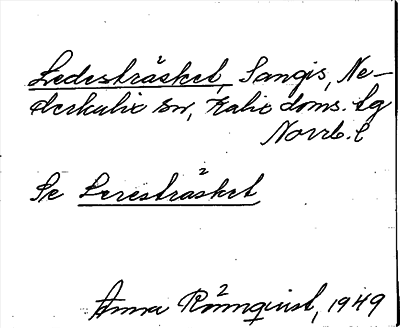 Ledesträsket, Sangis, Ne-
derkalix sn, Kalix doms. lg
Norrb. l
Se Leresträsket
Anna Rönnquist, 1949